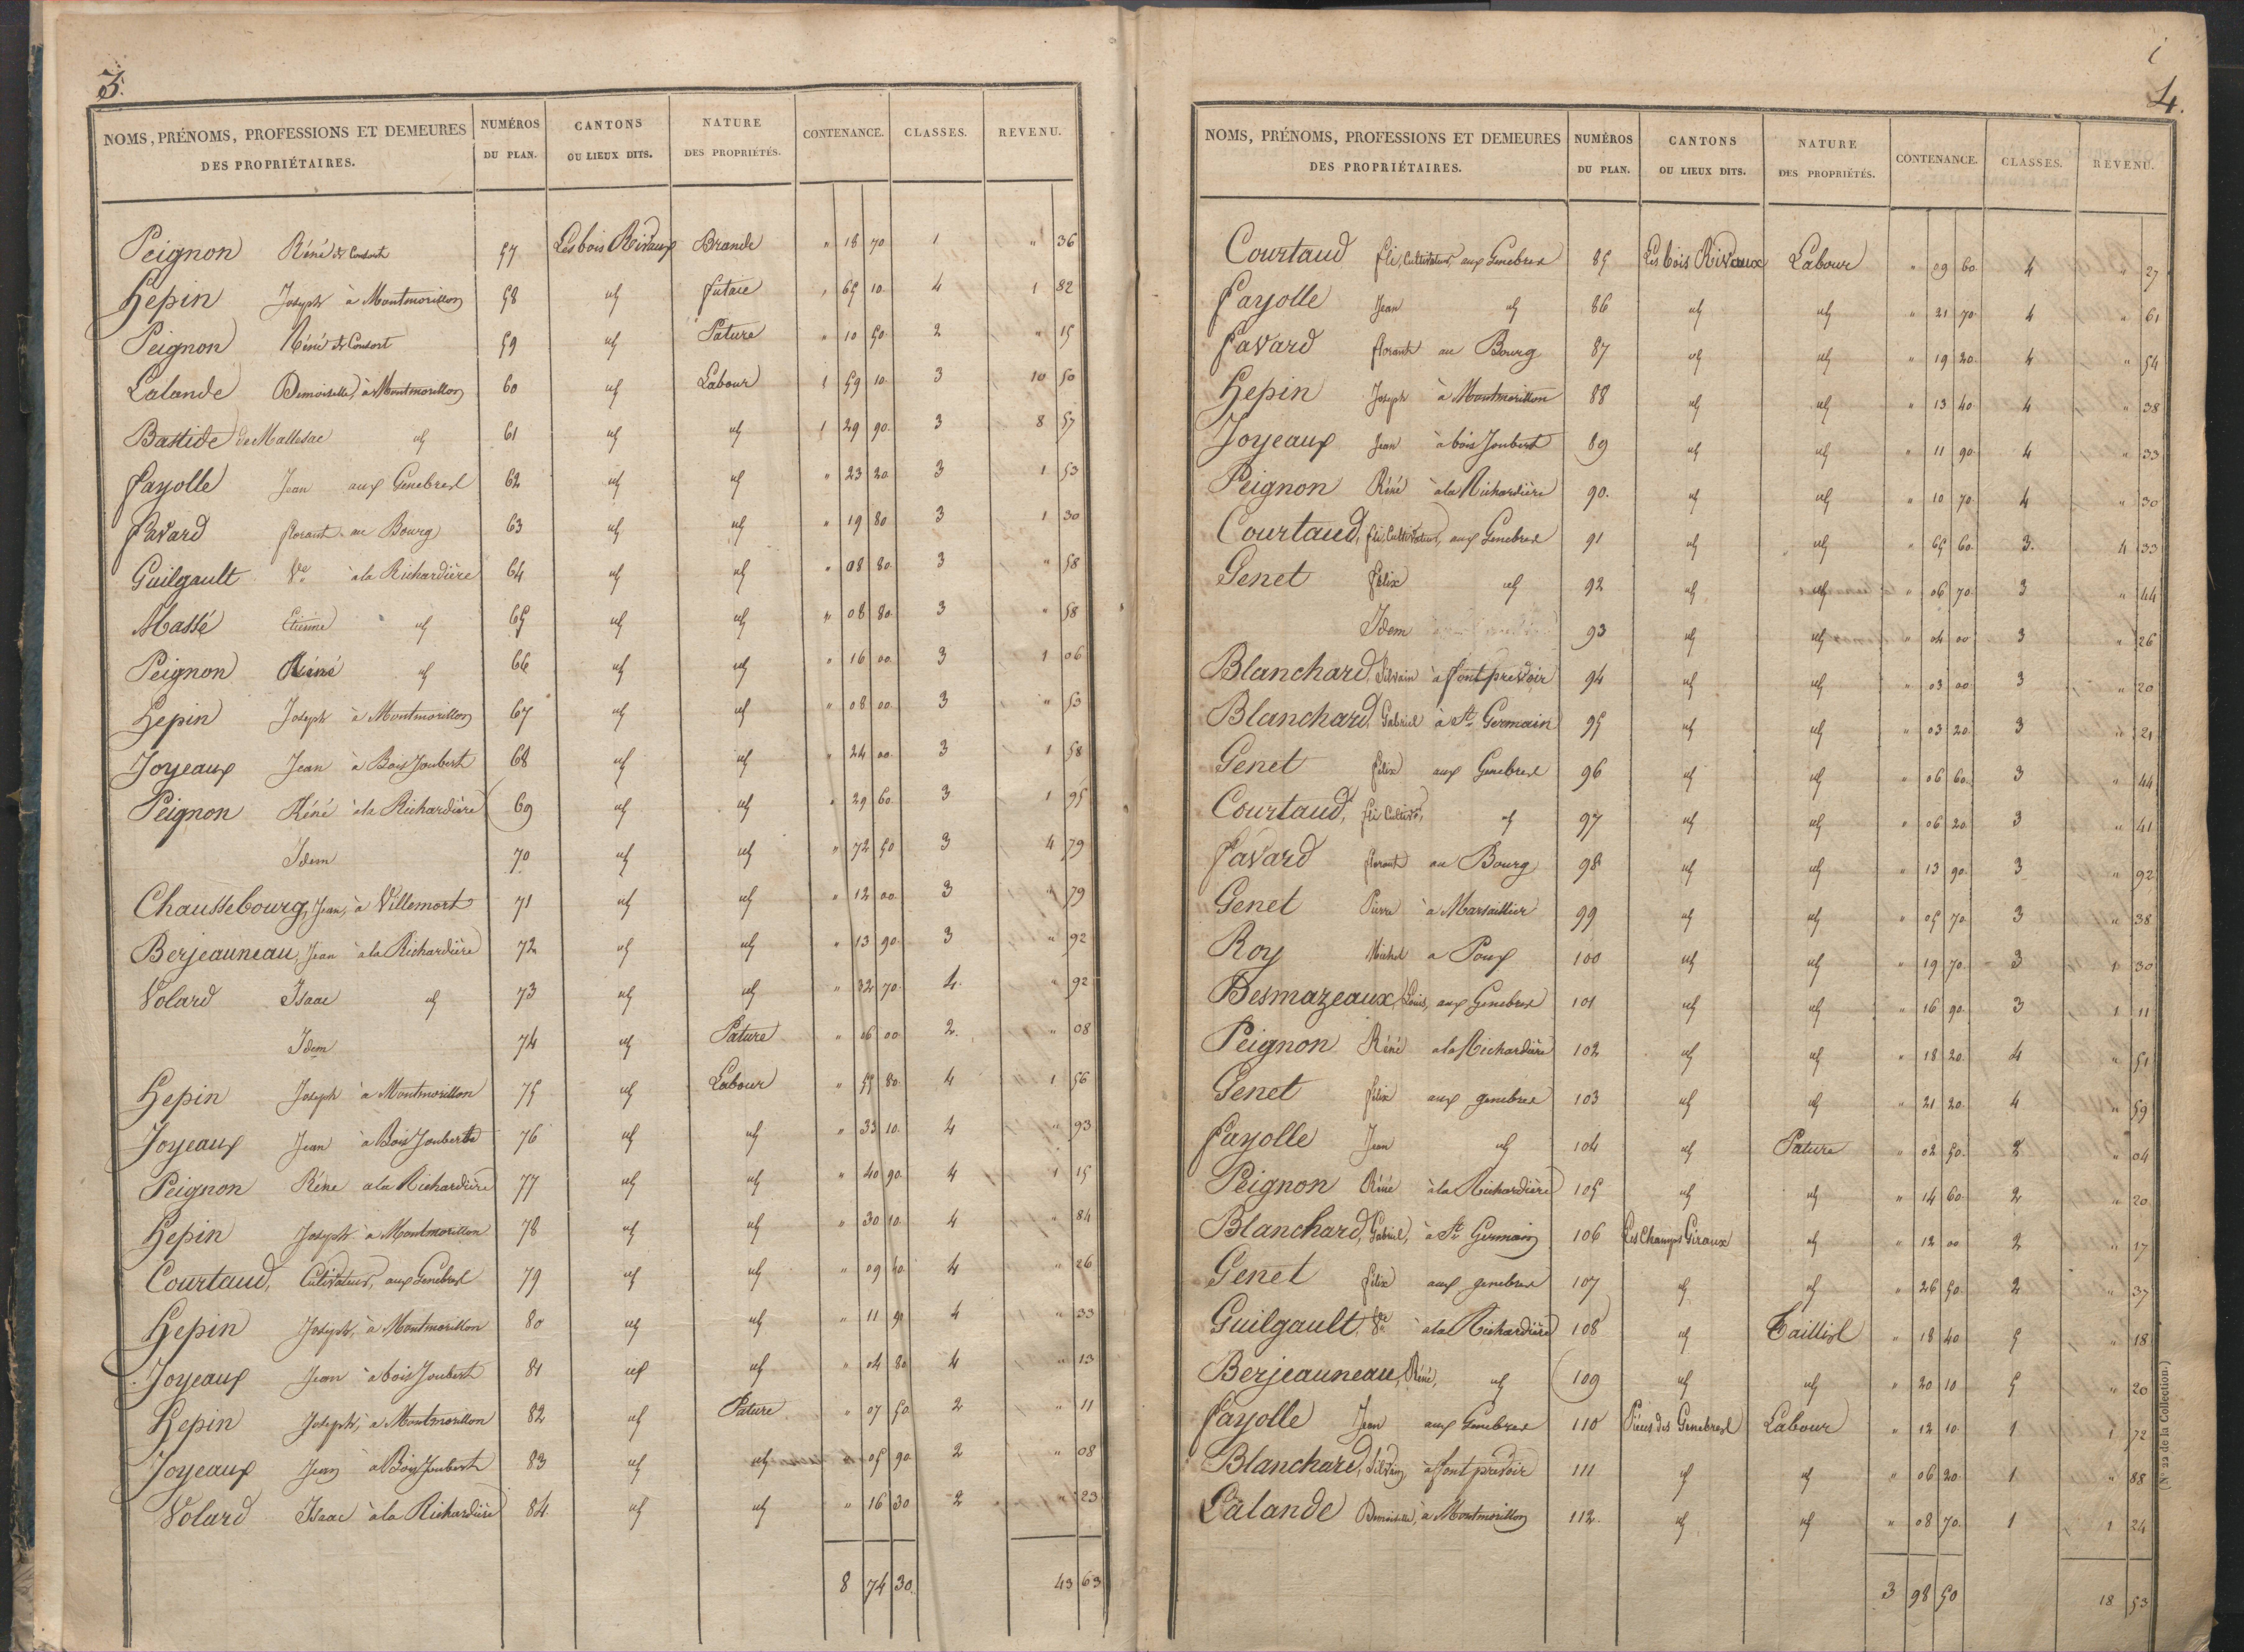 3.
NOMS, PRÉNOMS, PROFESSIONS ET DEMEURES DES PROPRIÉTAIRES. NUMÉROS DU PLAN. CANTONS OU LIEUX DITS. NATURE DES PROPRIÉTÉS. CONTENANCE. CLASSES. REVENU.
Peignon Réné & Consorts 57 Les bois Rivaux Brande " 18 70 1 " 36
Hepin Joseph à Montmorillon 58 id futaie " 65 10 4 1 82
Peignon Réné & Consort 59 id Pature " 10 50 2 " 15
Lalande Demoiselle, à Montmorillon 60 id Labour 1 59 10 3 10 50
Bastide de Mallesac id 61 id id 1 29 90 3 8 57
fayolle Jean aux Genebres 62 id id " 23 20 3 1 53
favard florant au Bourg 63 id id " 19 80 3 1 30
Guilgault Ve à la Richardière 64 id id " 08 80 3 " 58
Massé Etienne id 65 id id " 08 80 3 " 58
Peignon Réné id 66 id id " 16 00 3 1 06
Hepin Joseph à Montmorillon 67 id id " 08 00 3 " 53
Joyeaux Jean à Bois Joubert 68 id id " 24 00 3 1 58
Peignon Réné à la Richardière 69 id id " 29 60 3 1 95
Idem 70 id id " 72 50 3 4 79
Chaussebourg, Jean, à Villemort 71 id id " 12 00 3 " 79
Berjeauneau, Jean à la Richardière 72 id id " 13 90 3 " 92
Volard Isaac id 73 id id " 32 70 4 " 92
Idem 74 id Pature " 06 00 2 " 08
Hepin Joseph à Montmorillon 75 id Labour " 55 80 4 1 56
Joyeaux Jean à Bois Joubert 76 id id " 33 10 4 " 93
Peignon Réne a la Richardière 77 id id " 40 90 4 1 15
Hepin Joseph à Montmorillon 78 id id " 30 10 4 " 84
Courtaud, Cultivateur, aux Genebres 79 id id " 09 40 4 " 26
Hepin Joseph, à Montmorillon 80 id id " 11 90 4 " 33
Joyeaux Jean à bois Joubert 81 id id " 04 80 4 " 13
Hepin Joseph, à Montmorillon 82 id Pature " 07 50 2 " 11
Joyeaux Jean à Bois Joubert 83 id id " 05 90 2 " 08
Volard Isaac à la Richardière 84. id id " 16 30 2 " 23
8 74 30 43 63
4.
NOMS, PRÉNOMS, PROFESSIONS ET DEMEURES DES PROPRIÉTAIRES. NUMÉROS DU PLAN. CANTONS OU LIEUX DITS. NATURE DES PROPRIÉTÉS. CONTENANCE. CLASSES. REVENU.
Courtaud fli, Cultivateur, aux Genebres 85 Les bois Rivaux Labour " 09 60 4 " 27
fayolle Jean id 86 id id " 21 70 4 " 61
favard florant au Bourg 87 id id " 19 20 4 " 54
Hepin Joseph à Montmorillon 88 id id " 13 40 4 " 38
Joyeaux Jean à bois Joubert 89 id id " 11 90 4 " 33
Peignon Réné à la Richardière 90. id id " 10 70 4 " 30
Courtaud, fli, Cultivateur, aux Genebres 91 id id " 65 60 3. 4 33
Genet félix id 92 id id " 06 70 3 " 44
Idem 93 id id " 04 00 3 " 26
Blanchard, Silvain à font prevoir 94 id id " 03 00 3 " 20
Blanchard, Gabriel à St Germain 95 id id " 03 20 3 " 21
Genet félix aux Genebres 96 id id " 06 60 3 " 44
Courtaud, fli Cultivr, id 97 id id " 06 20 3 " 41
favard florant au Bourg 98 id id " 13 90 3 " 92
Genet Pierre à Marsaillier 99 id id " 05 70 3 " 38
Roy Michel a Poux 100 id id " 19 70 3 1 30
Desmazeaux, Louis, aux Genebres 101 id id " 16 90 3 1 11
Peignon Réné a la Richardière 102 id id " 18 20 4 " 51
Genet félix aux genebres 103 id id " 21 20 4 " 59
fayolle Jean id 104 id Pature " 02 50 2 " 04
Peignon Réné à la Richardière 105 id id " 14 60 2 " 20
Blanchard, Gabriel, à St Germain 106 Les Champs Giraux id " 12 00 2 " 17
Genet félix aux genebres 107 id id " 26 50 2 " 37
Guilgault Ve à la Richardière 108 id Taillis " 18 40 5 " 18
Berjeauneau, Réné, id 109 id id " 20 10 5 " 20
fayolle Jean aux Genebres 110 Pièces des Genebres Labour " 12 10 1 1 72
Blanchard, Silvain à font prevoir 111 id id " 06 20 1 " 88
Lalande Demoiselle, à Montmorillon 112 id id " 08 70 1 1 24
3 98 50 18 53
(N° 22 de la Collection.)